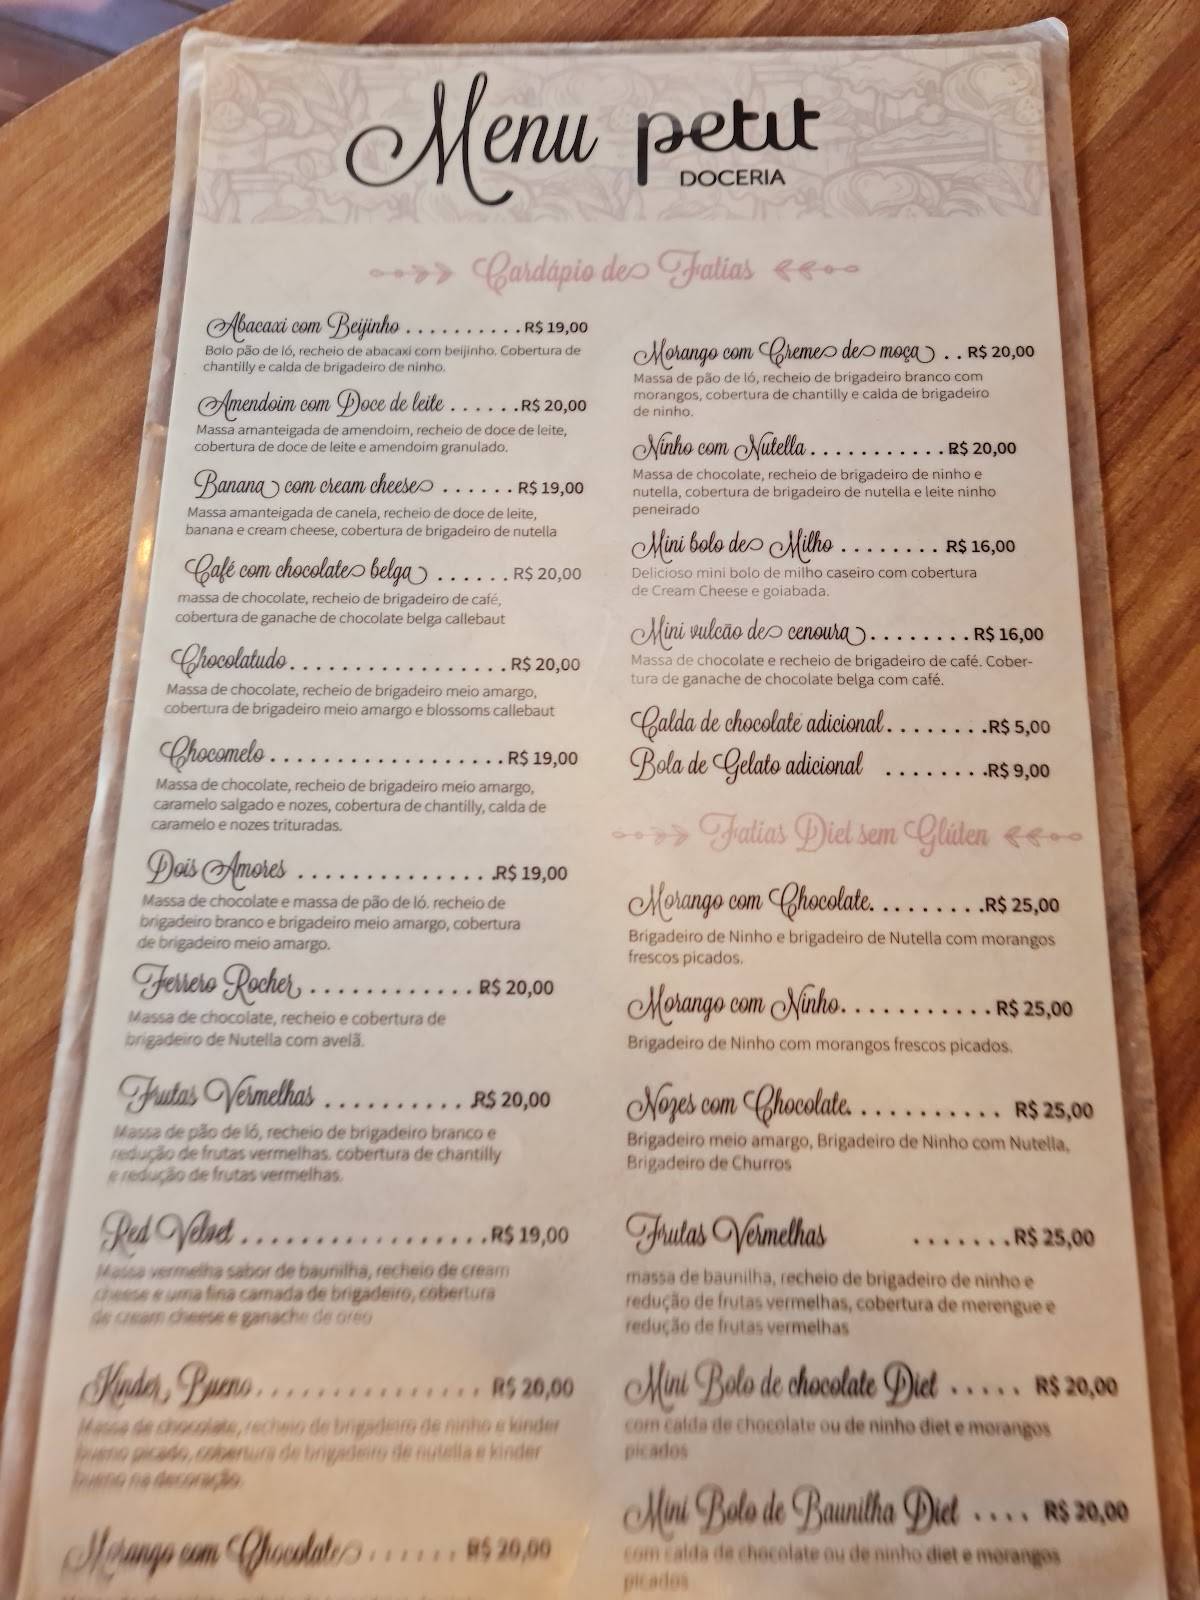 Menu petit
DOCERIA
Cardápio de Fatias
Abacaxi com Beijinho . . . . . . . . . . R$ 19,00
Bolo pão de ló, recheio de abacaxi com beijinho. Cobertura de
chantilly e calda de brigadeiro de ninho.
Amendoim com Doce de leite . . . . . . R$ 20,00
Massa amanteigada de amendoim, recheio de doce de leite,
cobertura de doce de leite e amendoim granulado.
Banana com cream cheese . . . . . . R$ 19,00
Massa amanteigada de canela, recheio de doce de leite,
banana e cream cheese, cobertura de brigadeiro de nutella
Café com chocolate belga . . . . . . R$ 20,00
massa de chocolate, recheio de brigadeiro de café,
cobertura de ganache de chocolate belga callebaut
Chocolatudo . . . . . . . . . . . . . . . . . R$ 20,00
Massa de chocolate, recheio de brigadeiro meio amargo,
cobertura de brigadeiro meio amargo e blossoms callebaut
Chocomelo . . . . . . . . . . . . . . . . . . R$ 19,00
Massa de chocolate, recheio de brigadeiro meio amargo,
caramelo salgado e nozes, cobertura de chantilly, calda de
caramelo e nozes trituradas.
Dois Amores . . . . . . . . . . . . . . . R$ 19,00
Massa de chocolate e massa de pão de ló. recheio de
brigadeiro branco e brigadeiro meio amargo, cobertura
de brigadeiro meio amargo.
Ferrero Rocher . . . . . . . . . . . . R$ 20,00
Massa de chocolate, recheio e cobertura de
brigadeiro de Nutella com avelã.
Frutas Vermelhas . . . . . . . . . . R$ 20,00
Massa de pão de ló, recheio de brigadeiro branco e
redução de frutas vermelhas. cobertura de chantilly
e redução de frutas vermelhas.
Red Velvet . . . . . . . . . . . . . . . . . R$ 19,00
Massa vermelha sabor de baunilha, recheio de cream
cheese e uma fina camada de brigadeiro, cobertura
de cream cheese e ganache de oreo
Kinder Bueno . . . . . . . . . . . . . . . R$ 20,00
Massa de chocolate, recheio de brigadeiro de ninho e kinder
bueno picado, cobertura de brigadeiro de nutella e kinder
bueno na decoração.
Morango com Chocolate . . . . . . R$ 20,00
Morango com Creme de moça . . R$ 20,00
Massa de pão de ló, recheio de brigadeiro branco com
morangos, cobertura de chantilly e calda de brigadeiro
de ninho.
Ninho com Nutella . . . . . . . . . . . R$ 20,00
Massa de chocolate, recheio de brigadeiro de ninho e
nutella, cobertura de brigadeiro de nutella e leite ninho
peneirado
Mini bolo de Milho . . . . . . . . R$ 16,00
Delicioso mini bolo de milho caseiro com cobertura
de Cream Cheese e goiabada.
Mini vulcão de cenoura . . . . . . . . R$ 16,00
Massa de chocolate e recheio de brigadeiro de café. Cober-
tura de ganache de chocolate belga com café.
Calda de chocolate adicional . . . . . . . . R$ 5,00
Bola de Gelato adicional . . . . . . . . R$ 9,00
Fatias Diet sem Glúten
Morango com Chocolate . . . . . . . . R$ 25,00
Brigadeiro de Ninho e brigadeiro de Nutella com morangos
frescos picados.
Morango com Ninho . . . . . . . . . . . R$ 25,00
Brigadeiro de Ninho com morangos frescos picados.
Nozes com Chocolate . . . . . . . . . . . R$ 25,00
Brigadeiro meio amargo, Brigadeiro de Ninho com Nutella,
Brigadeiro de Churros
Frutas Vermelhas . . . . . . . R$ 25,00
massa de baunilha, recheio de brigadeiro de ninho e
redução de frutas vermelhas, cobertura de merengue e
redução de frutas vermelhas
Mini Bolo de chocolate Diet . . . . . R$ 20,00
com calda de chocolate ou de ninho diet e morangos
picados
Mini Bolo de Baunilha Diet . . . . R$ 20,00
com calda de chocolate ou de ninho diet e morangos
picados